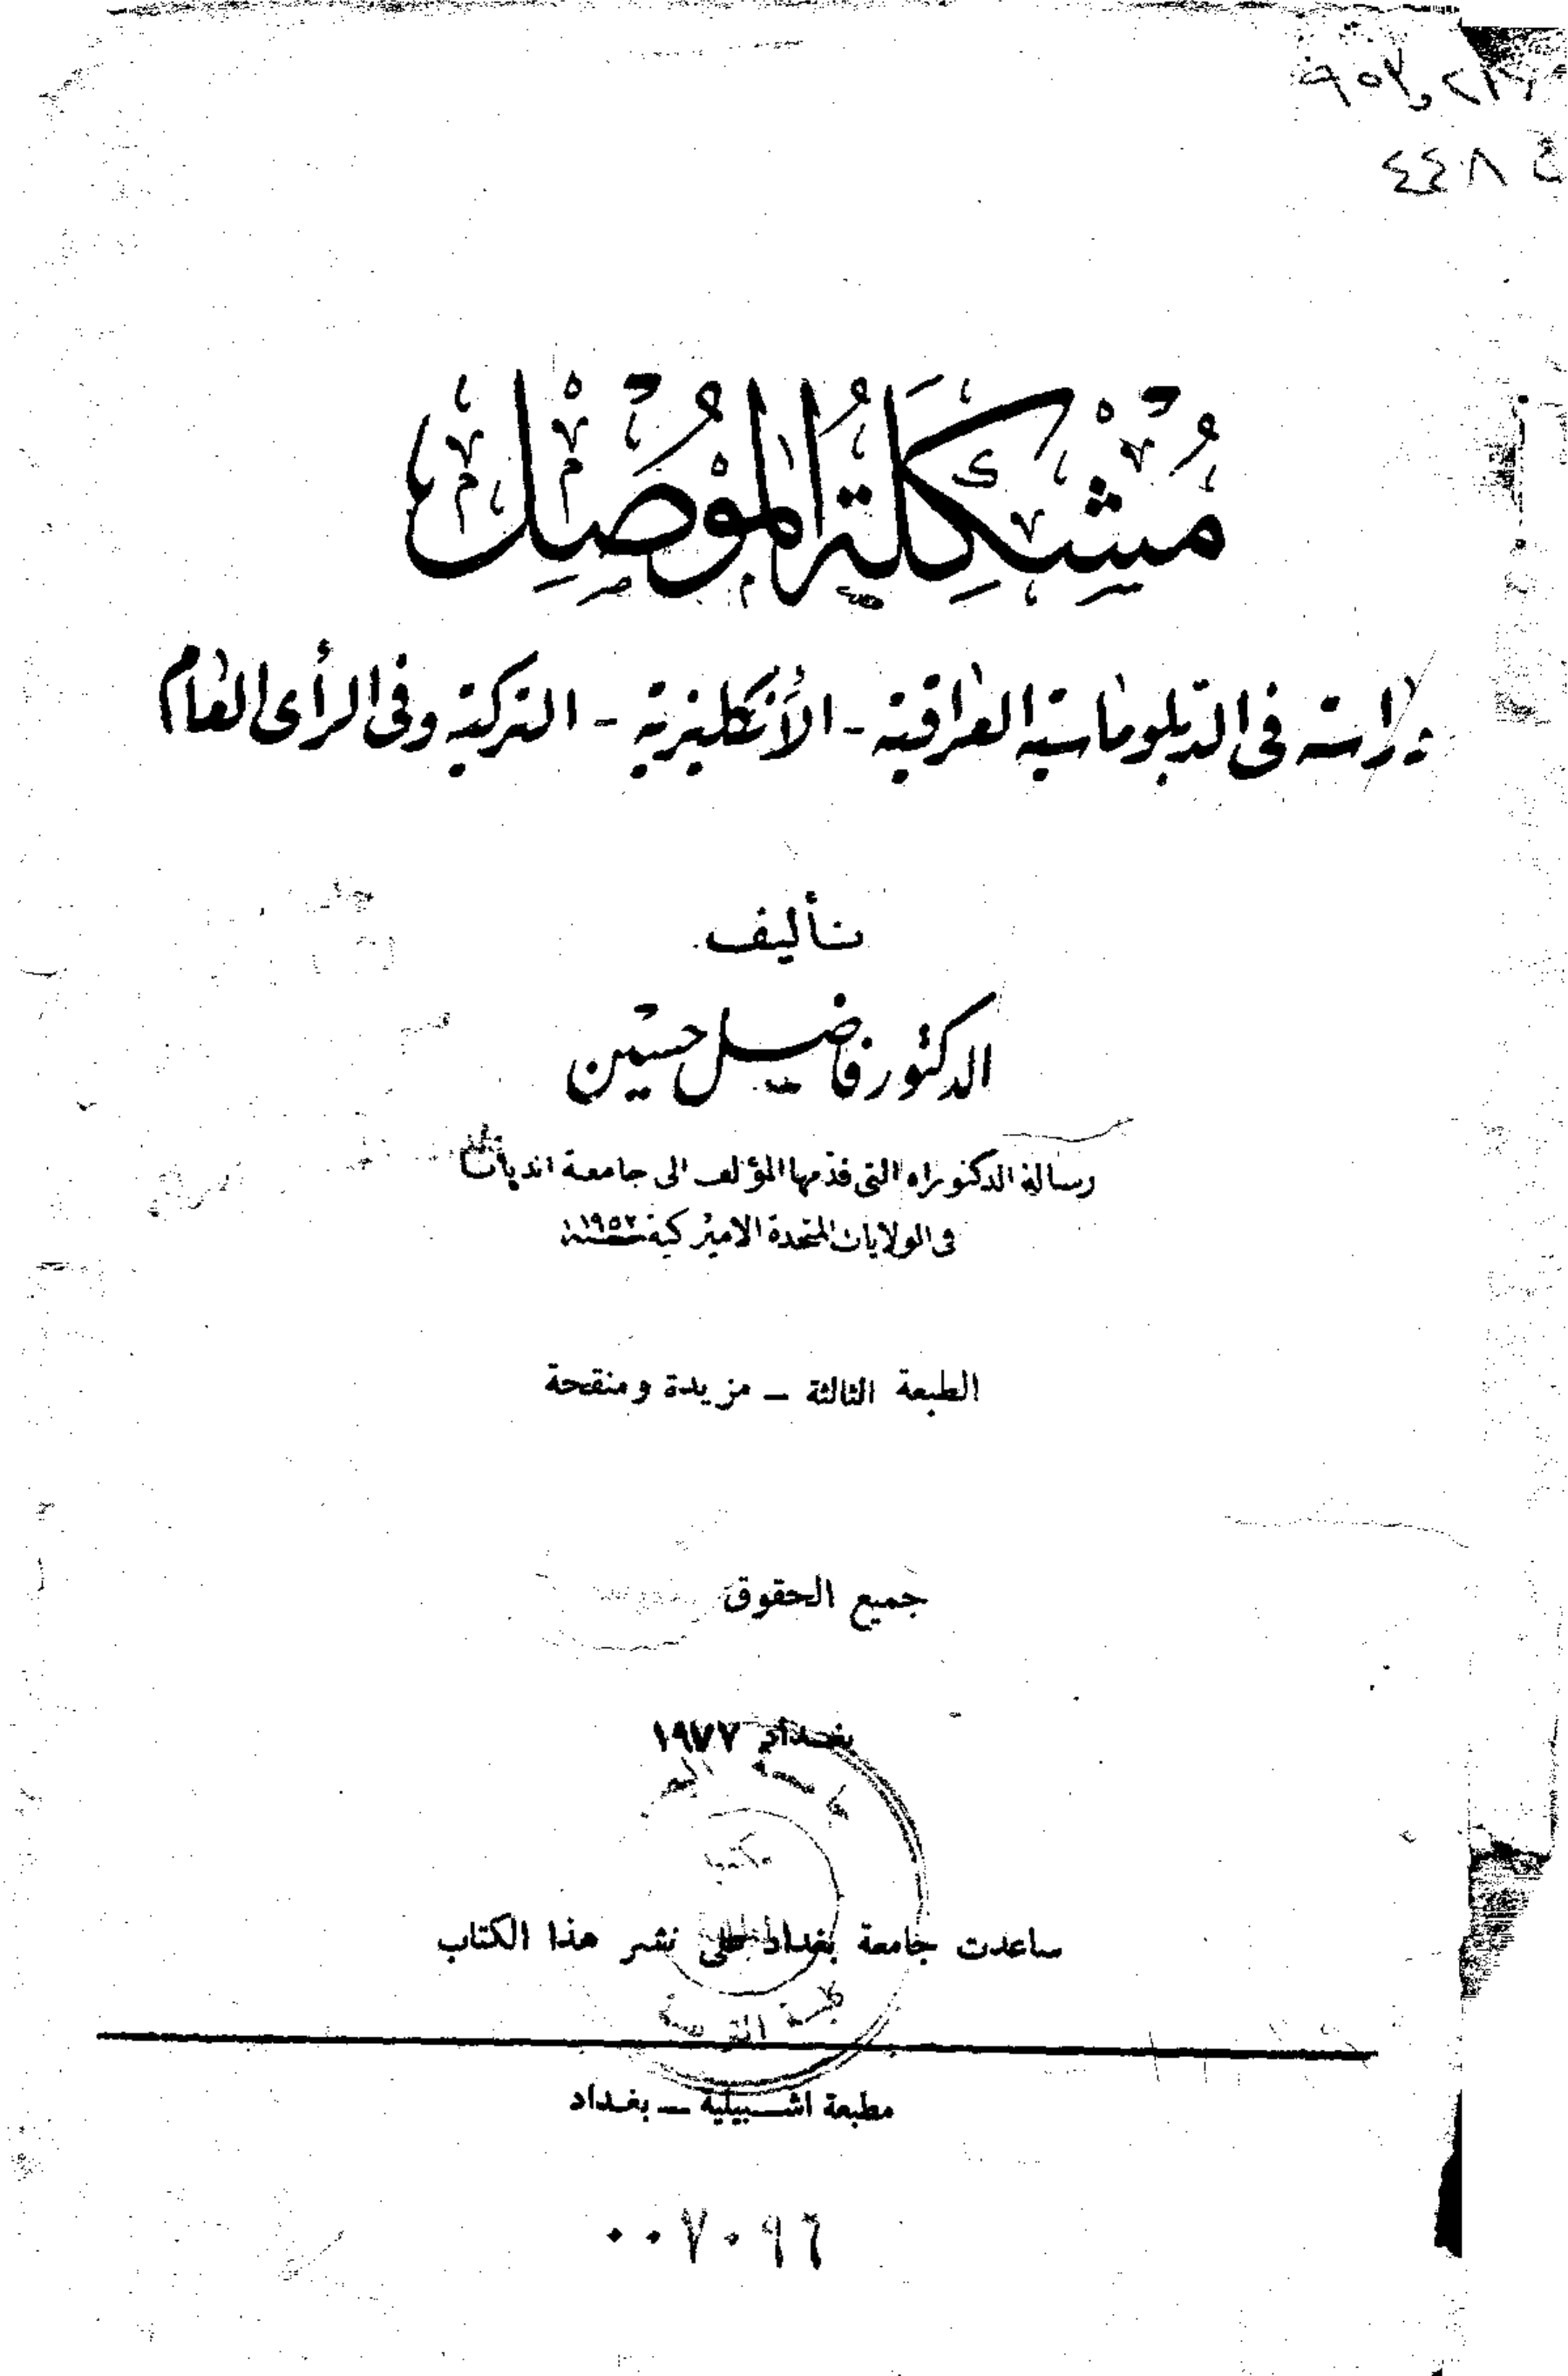 ح ٨٤٤
مُشْكِلَةُ المَوْصِل
دراسة في الدبلوماسية العراقية - الأنكليزية - التركية وفي الرأى العام
تأليف
الدكتور فاضل حسين
رسالة الدكتوراه التي قدمها المؤلف الى جامعة انديانا
في الولايات المتحدة الاميركية سنة ١٩٥٢
الطبعة الثالثة – مزيدة ومنقحة
جميع الحقوق
بغداد ١٩٧٧
مكتبة
ساعدت جامعة بغداد على نشر هذا الكتاب
كلية التربية
مطبعة اشبيلية – بغداد
٠٠٧٠٩٦